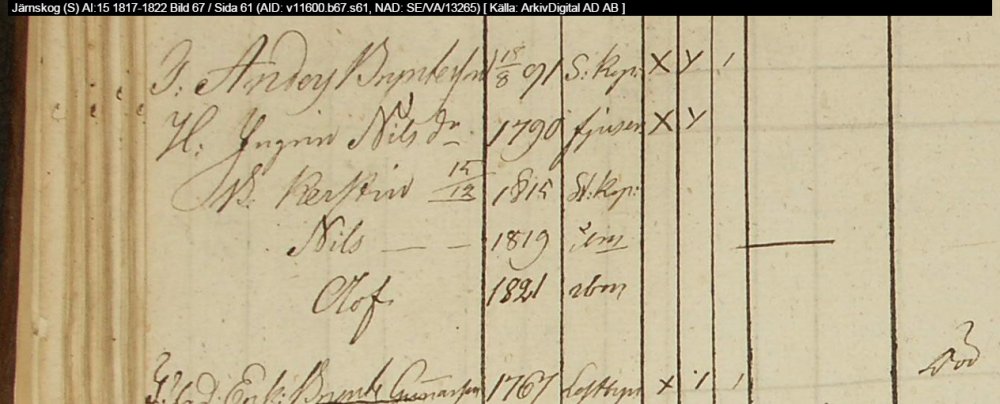 Järnskog (S) AI:15 1817-1822 Bild 67 / Sida 61 (AID: v11600.b67.s61, NAD: SE/VA/13265) [ Källa: ArkivDigital AD AB ]
J: Anders Bryntesson 18/8 91 S: Kop: X Y /
H. Ingrin Nils dr 1790 X Y
B. Kerstin 15/12 1815 St: Kop:
Nils — — 1819
Olof 1821 ibm
Död
Enk: Brynte Gunnarsson 1767 x